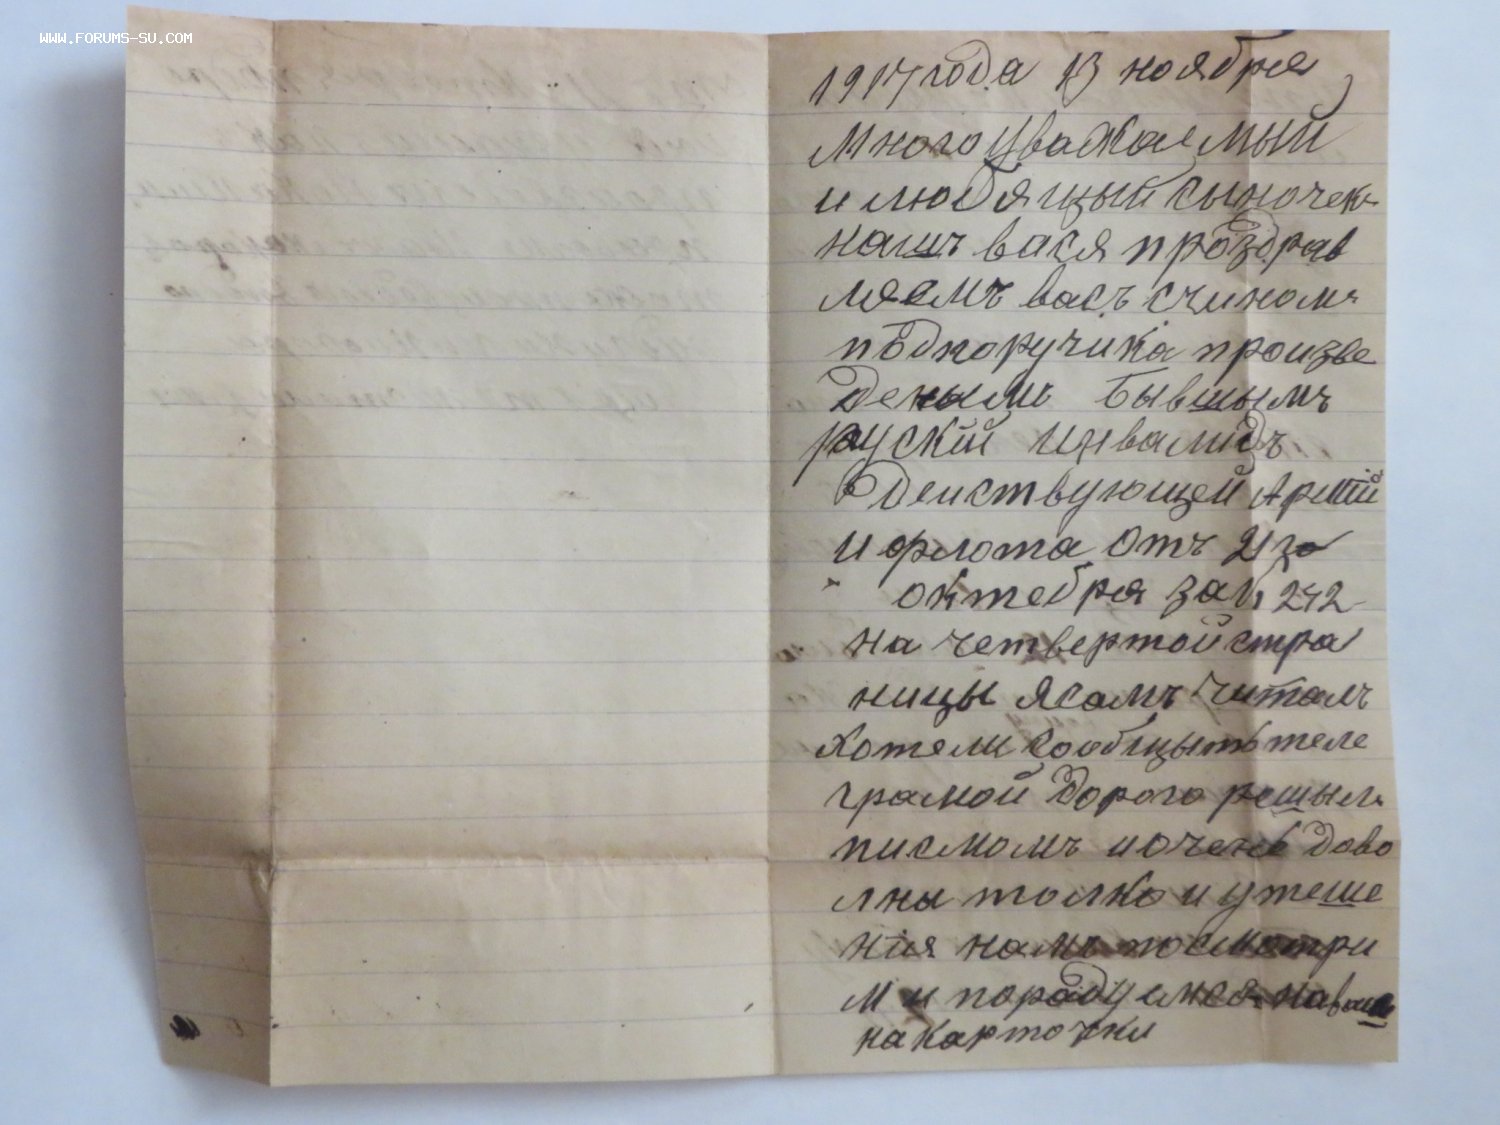 WWW.FORUMS-SU.COM
1917 года 13 ноября
многоуважаемый
и любящый сыночекъ
нашъ вася проздрав
ляемъ васъ счиномъ
подпоручика произве
деным бывшымъ
руский инвалидъ
Действующей Армій
и флота отъ
октебря за 242
на четвертой стра
ницы я самъ читалъ
хотели сообщыть теле
грамой дорого решылъ
писмомъ и очень дово
лны толко и утеше
ния намъ посмотри
м и порадуемся
на карточки